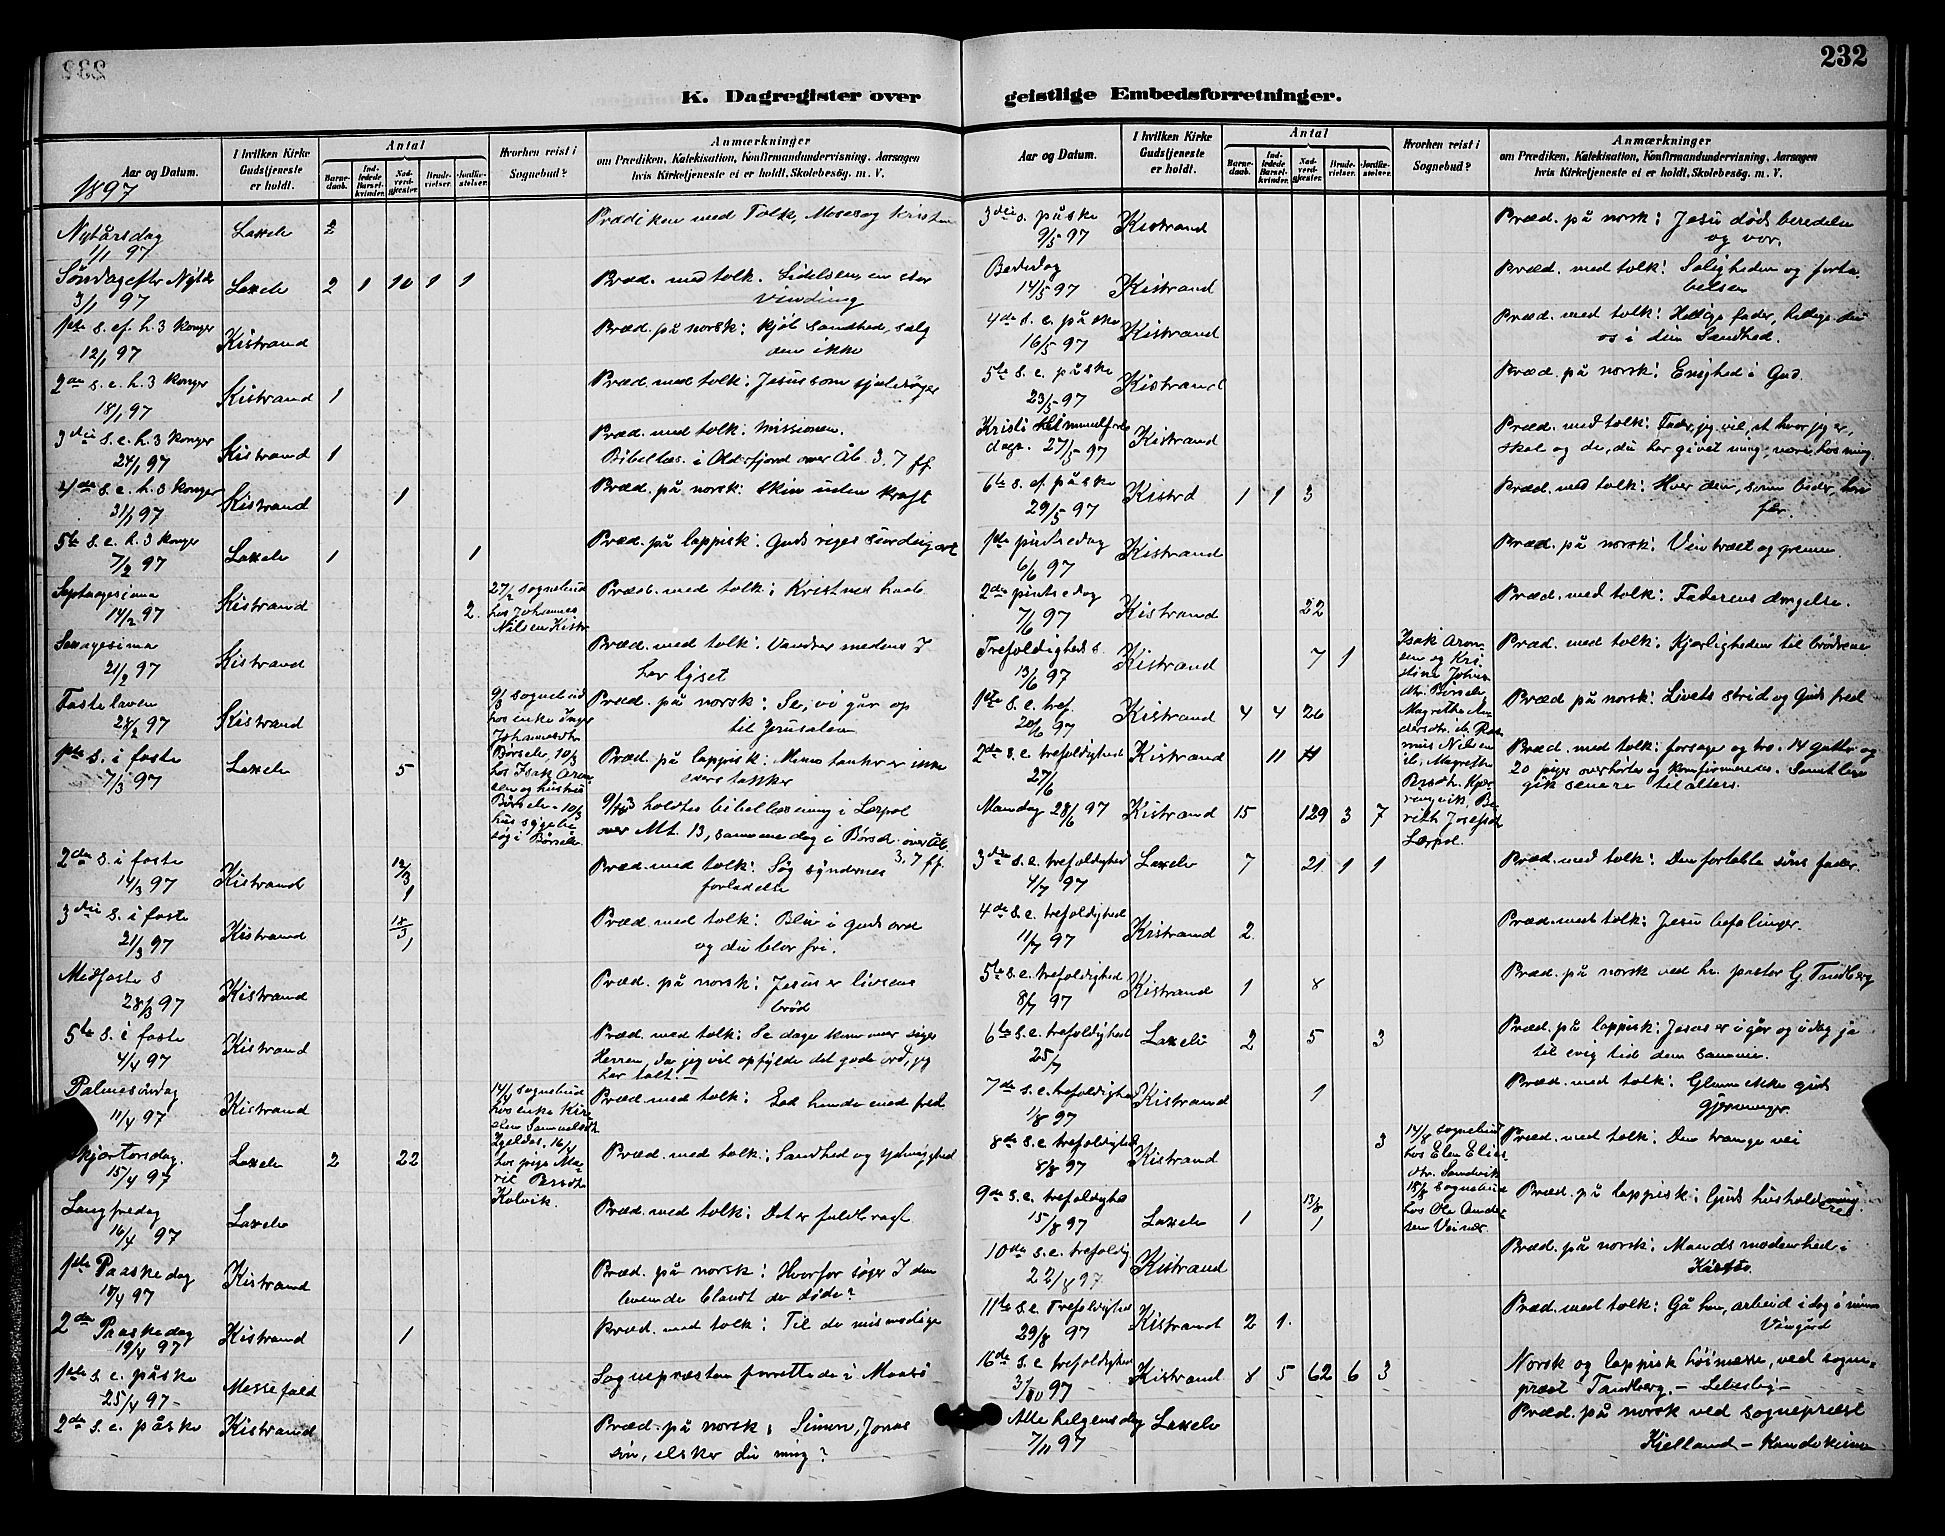 232
K. Dagregister over geistlige Embedsforretninger.
Aar og Datum.
I hvilken Kirke Gudstjeneste er holdt.
Antal
Barnedaab.
Indledede Barselkvinder.
Nadverdgjester.
Brudevielser.
Jordfæstelser.
Hvorhen reist i Sognebud?
Anmærkninger
om Prædiken, Katekisation, Konfirmandundervisning, Aarsagen
hvis Kirketjeneste ei er holdt, Skolebesøg. m. V.
1897
Nytårsdag 1/1 97 Laxelv 2 Prædiken med Tolk, Moses og Kristen
Søndag efter Nytår 3/1 97 Laxelv 2 1 10 1 1 Præd. med tolk. Lidelsen, en stor
vinding
1ste s. ef. h. 3 konger 12/1 97 Kistrand Præd. på norsk: kjøb sandhed, sælg
den ikke
2den s. e. h. 3 konger 18/1 97 Kistrand 1 Præd. med tolk: Jesus som sjælesøger
3die s. e. h. 3 konger 24/1 97 Kistrand 1 Præd. med tolk: missionen.
Bibellæs. i Oldefjord over Åb. 3, 7 ff
4de s. e. h. 3 konger 31/1 97 Kistrand 1 Præd. på norsk: skin uden kraft
5te s. e. h. 3 konger 7/2 97 Laxelv 1 1 Præd. på lappisk: Guds riges
Septuagesima 14/2 97 Kistrand 2. 27/2 sognebud
hos Johannes
Nilsen Kistr Præd. med tolk: Kristnes haab.
Sexagesima 21/2 97 Kistrand Præd. med tolk: Vandrer medens I
har lyset
Fastelaven 28/2 97 Kistrand 9/3 sognebud
hos enke Inger
Johannesdtr
Børselv, 10/3
hos Isak Aron-
sen og hustru
Børselv. 10/3 Præd. på norsk: Se, vi går op
til Jerusalem
1ste s. i faste 7/3 97 Laxelv 5 Præd. på lappisk: Mine tanker er ikke
eders tanker
9/3 holdtes bibellæsning i Læpol
over Mt. 13, samme dag i Børselv over Åb.
3, 7 ff.
2den s. i faste 14/3 97 Kistrand 12/3 1 Præd. med tolk: Søg syndernes
forladelse
3die s. i faste 21/3 97 Kistrand 18/3 1 Præd. med tolk: Bliv i guds ord
og du blir fri.
Midfaste s 28/3 97 Kistrand Præd. på norsk: Jesus er livsens
brød
5te s. i faste 4/4 97 Kistrand Præd. med tolk: Se dage kommer siger
Herren, da jeg vil opfylde det gode ord, jeg
har talt. —
Palmesøndag 11/4 97 Kistrand 14/4 sognebud
hos enke
Samuelsdtr Præd. med tolk: Gak hen med fred
Skjærtorsdag. 15/4 97 Laxelv 2 22 Igeldas. 16/4
hos pige Ma-
rit Persdtr
Kolvik. Præd. med tolk: Sandhed og ydmyghed
Langfredag 16/4 97 Laxelv Præd. med tolk: Det er fuldbragt
1ste Paaskedag 18/4 97 Kistrand Præd. på norsk: Hvorfor søger I den
levende blandt de døde?
2den Paaskedag 19/4 97 Kistrand 1 Præd. med tolk: Til de mismodige
1ste s. e. påske 25/4 97 - Messefald Sognepræsten forrettede i Maasø
2den s. e. påske Kistrand Præd. på norsk: Simon, Jonas
søn, elsker du mig?
3die s. påske 9/5 97 Kistrand Præd. på norsk: Jesu døds beredelse
og vor.
Bededag 14/5 97 Kistrand Præd. med tolk: Saligheden og forta-
belsen
4de s. e. påske 16/5 97 Kistrand Præd. med tolk: Hellige fader, hellige du
os i din Sandhed.
5te s. e. påske 23/5 97 Kistrand Præd. på norsk: Enighed i Gud.
Kristi Himmelfarts
dags. 27/5 97 Kistrand Præd. med tolk: Fader, jeg vil, at hvor jeg er,
skal og de, du har givet mig, være hos mig.
6te s. ef. påske 29/5 97 Kistrd 1 1 3 Præd. med tolk: Hver den, som beder, han
får.
1ste pintsedag 6/6 97 Kistrand Præd. på norsk: Vintræet og grenene
2den pintsedag 7/6 97 Kistrand 22 Præd. med tolk: Faderens dragelse.
Trefoldigheds s. 13/6 97 Kistrand 7 1 Isak Aron-
sen og Kri-
stine Johns-
dtr. Børselv Præd. med tolk: Kjærligheden til brødrene
1ste s. e. tref. 20/6 97 Kistrand 4 4 26 Magrethe An-
dersdtr. Ras-
mus Nilsen Præd på norsk: Livets strid og Guds fred
2den s. e. trefoldighed 27/6 Kistrand 11 Præd. med tolk: forsage og tro. 14 gutter og
20 piger overhørtes og konfirmeredes. Samtlige
gik senere til alters.
Mandag 28/6 97 Kistrand 15 129 3 7 Persdtr.
Josefsdtr
Læpol.
3die s. e. trefoldighed 4/7 97 Laxelv 7 21 1 1 Præd. med tolk: Den fortabte søns fader.
4de s. e. trefoldighed 11/7 97 Kistrand 2. Præd. med tolk: Jesu befalinger.
5te s. e. trefoldighed 8/7 97 Kistrand 1 8 Præd. på norsk ved hr. pastor G. Tandberg
6te s. e. trefoldighed 25/7 Laxelv 2 5 3 Præd. på lappisk: Jesus er i går og i dag ja
til evig tid den samme.
7de s. e. trefoldighed 1/8 97 Kistrand 1 Præd. med tolk: Glem ikke guds
gjerninger.
8de s. e. trefoldighed 8/8 97 Kistrand 3 14/8 sognebud
hos Elen Elias-
dtr. Sandvik Præd. med tolk: Den trange vei
9de s. e. trefoldighed 15/8 97 Laxelv 1 13/8 1 15/8 sognebud
hos Ole Ander-
sen Veines Præd. på lappisk: Guds husholdning
10de s. e. trefoldig. 22/8 97 Kistrand Præd. på norsk: Mands modenhed i
Kristus.
11te s. e. Trefoldighed 29/8 97 Kistrand 2 1. Præd. med tolk: Gå hen, arbeid i dag i min
Vingård
16de s. e. trefoldighed 3/10 97 Kistrand 8 5 62 6 3 Norsk og lappisk høimesse, ved sogne-
præst Tandberg. — Lebesby —
Alle helgens dag 7/11 97 Laxelv Præd. på norsk ved sognepræst
Kjelland — Kautokeino